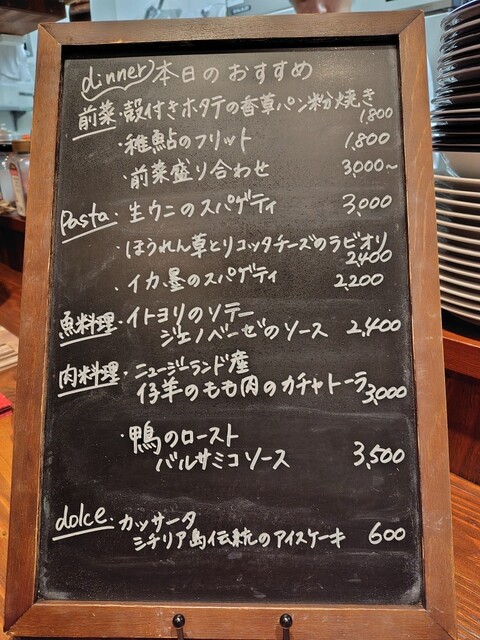 dinner 本日のおすすめ
前菜・殻付きホタテの香草パン粉焼き
1,800
・稚鮎のフリット 1,800
・前菜盛り合わせ 3,000~
Pasta・生ウニのスパゲティ 3,000
・ほうれん草とリコッタチーズのラビオリ
2,400
・イカ墨のスパゲティ 2,200
魚料理・イトヨリのソテー
ジェノベーゼのソース 2,400
肉料理・ニュージーランド産
仔羊のもも肉のカチャトーラ 3,000
・鴨のロースト
バルサミコソース 3,500
dolce・カッサータ
シチリア島伝統のアイスケーキ 600